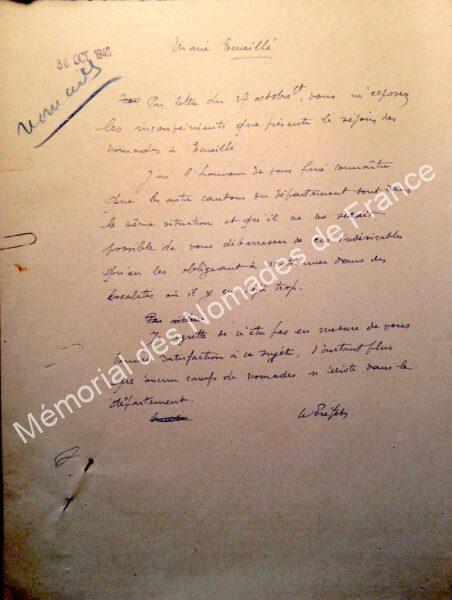 30 OCT 1940
nomades
Maire Ecueillé
Par lettre du 17 octobre ct, vous m'exposez
les inconvénients que présente le séjour des
nomades à Ecueillé.
J'ai l'honneur de vous faire connaître
que les autres cantons du département sont dans
la même situation et qu'il ne me serait
possible de vous débarrasser de ces indésirables
qu'en les obligeant à stationner dans des
localités où il y en a déjà trop.
Je regrette de n'être pas en mesure de vous
donner satisfaction à ce sujet, d'autant plus
qu'aucun camp de nomades n'existe dans le
département.
Le Préfet
Mémorial des Nomades de France